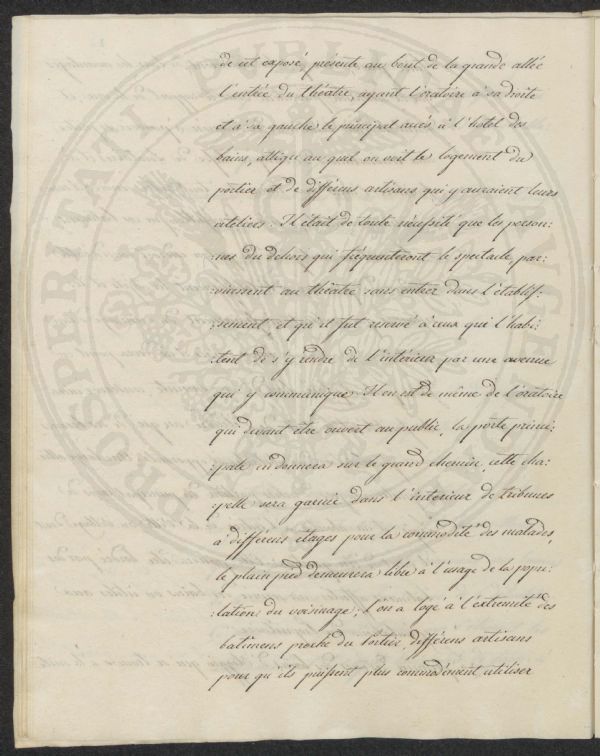 de cet exposé présente au bout de la grande allée
l'entrée du théatre, ayant l'oratoire à sa droite
et à sa gauche le principal accès à l'hotel des
bains, attigu au quel on voit le logement du
portier et de différens artisans qui y auraient leurs
ateliers. Il était de toute nécessité que les person:
:nes du dehors qui fréquenteront le spectacle par:
:vinssent au théatre sans entrer dans l'établis:
:sement, et qu'il fut reservé à ceux qui l'habi:
:tent de s'y rendre de l'intérieur par une avenue
qui y communique. Il en est de même de l'oratoire
qui devant être ouvert au public, la porte princi:
:pale en donnera sur le grand chemin, cette cha:
:pelle sera garnie dans l'intérieur de tribunes
à différens étages pour la commodité des malades,
le plain pied demeurera libre à l'usage de la popu:
:lation du voisinage; l'on a logé à l'extremité des
batimens proche du Portier, différens artisans
pour qu'ils puissent plus commodément utiliser
PROSPERITATI PUBLICAE